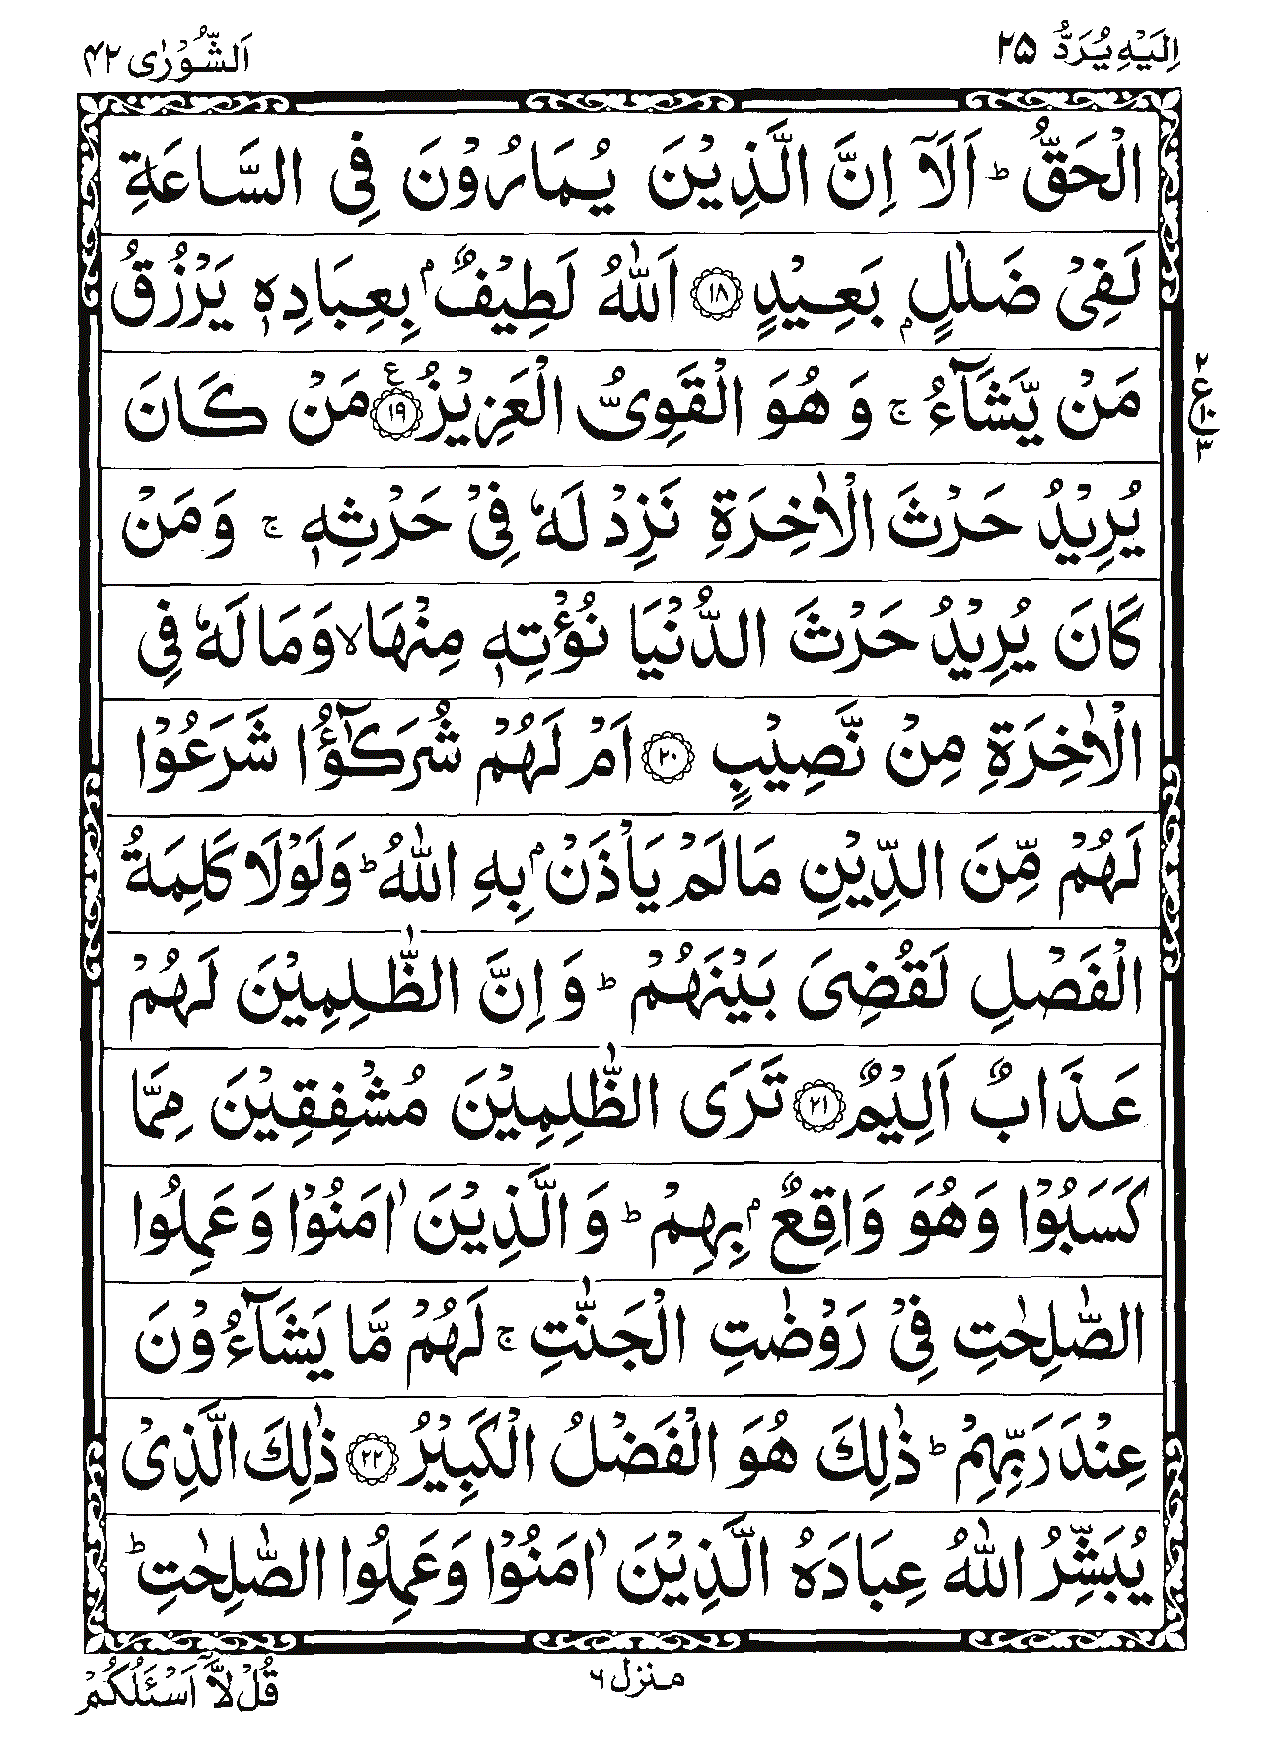 اِلَیْهِ یُرَدُّ ۲۵
اَلشُّوْرٰی ۴۲
الْحَقُّ ؕ اَلَاۤ اِنَّ الَّذِیْنَ یُمَارُوْنَ فِی السَّاعَةِ
لَفِیْ ضَلٰلٍۭ بَعِیْدٍ ﴿۱۸﴾ اَللّٰهُ لَطِیْفٌۢ بِعِبَادِهٖ یَرْزُقُ
مَنْ یَّشَآءُ ۚ وَ هُوَ الْقَوِیُّ الْعَزِیْزُ ﴿۱۹﴾ ع مَنْ كَانَ
۲
ع
۱۰
۳
یُرِیْدُ حَرْثَ الْاٰخِرَةِ نَزِدْ لَهٗ فِیْ حَرْثِهٖ ۚ وَ مَنْ
كَانَ یُرِیْدُ حَرْثَ الدُّنْیَا نُؤْتِهٖ مِنْهَا ۙ وَ مَا لَهٗ فِی
الْاٰخِرَةِ مِنْ نَّصِیْبٍ ﴿۲۰﴾ اَمْ لَهُمْ شُرَكٰٓؤُا شَرَعُوْا
لَهُمْ مِّنَ الدِّیْنِ مَا لَمْ یَاْذَنْۢ بِهِ اللّٰهُ ؕ وَ لَوْ لَا كَلِمَةُ
الْفَصْلِ لَقُضِیَ بَیْنَهُمْ ؕ وَ اِنَّ الظّٰلِمِیْنَ لَهُمْ
عَذَابٌ اَلِیْمٌ ﴿۲۱﴾ تَرَی الظّٰلِمِیْنَ مُشْفِقِیْنَ مِمَّا
كَسَبُوْا وَ هُوَ وَاقِعٌۢ بِهِمْ ؕ وَ الَّذِیْنَ اٰمَنُوْا وَ عَمِلُوا
الصّٰلِحٰتِ فِیْ رَوْضٰتِ الْجَنّٰتِ ۚ لَهُمْ مَّا یَشَآءُوْنَ
عِنْدَ رَبِّهِمْ ؕ ذٰلِكَ هُوَ الْفَضْلُ الْكَبِیْرُ ﴿۲۲﴾ ذٰلِكَ الَّذِیْ
یُبَشِّرُ اللّٰهُ عِبَادَهُ الَّذِیْنَ اٰمَنُوْا وَ عَمِلُوا الصّٰلِحٰتِ ؕ
منزل ۶
قُلْ لَّاۤ اَسْـَٔلُكُمْ